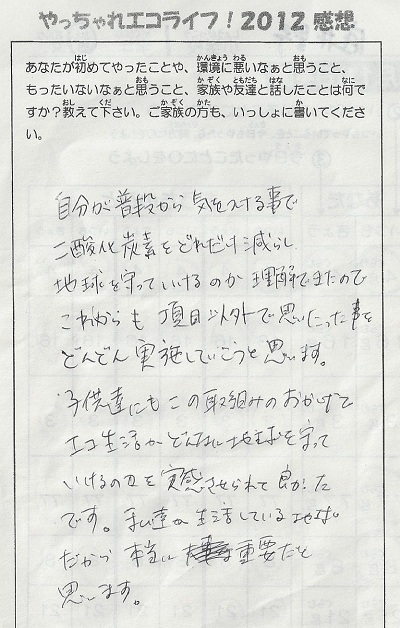 やっちゃれエコライフ！2012 感想
あなたが初めてやったことや、環境に悪いなぁと思うこと、
もったいないなぁと思うこと、家族や友達と話したことは何で
すか？教えて下さい。ご家族の方も、いっしょに書いてくださ
い。
自分が普段から気をつける事で
二酸化炭素をどれだけ減らし
地球を守っていけるのか理解できたので
これからも項目以外で思いたった事を
どんどん実施していこうと思います。
子供達にもこの取組みのおかげで
エコ生活がどんなに地球を守って
いけるのかを実感させられて良かった
です。私達が生活している地球
だから本当に重要だと
思います。